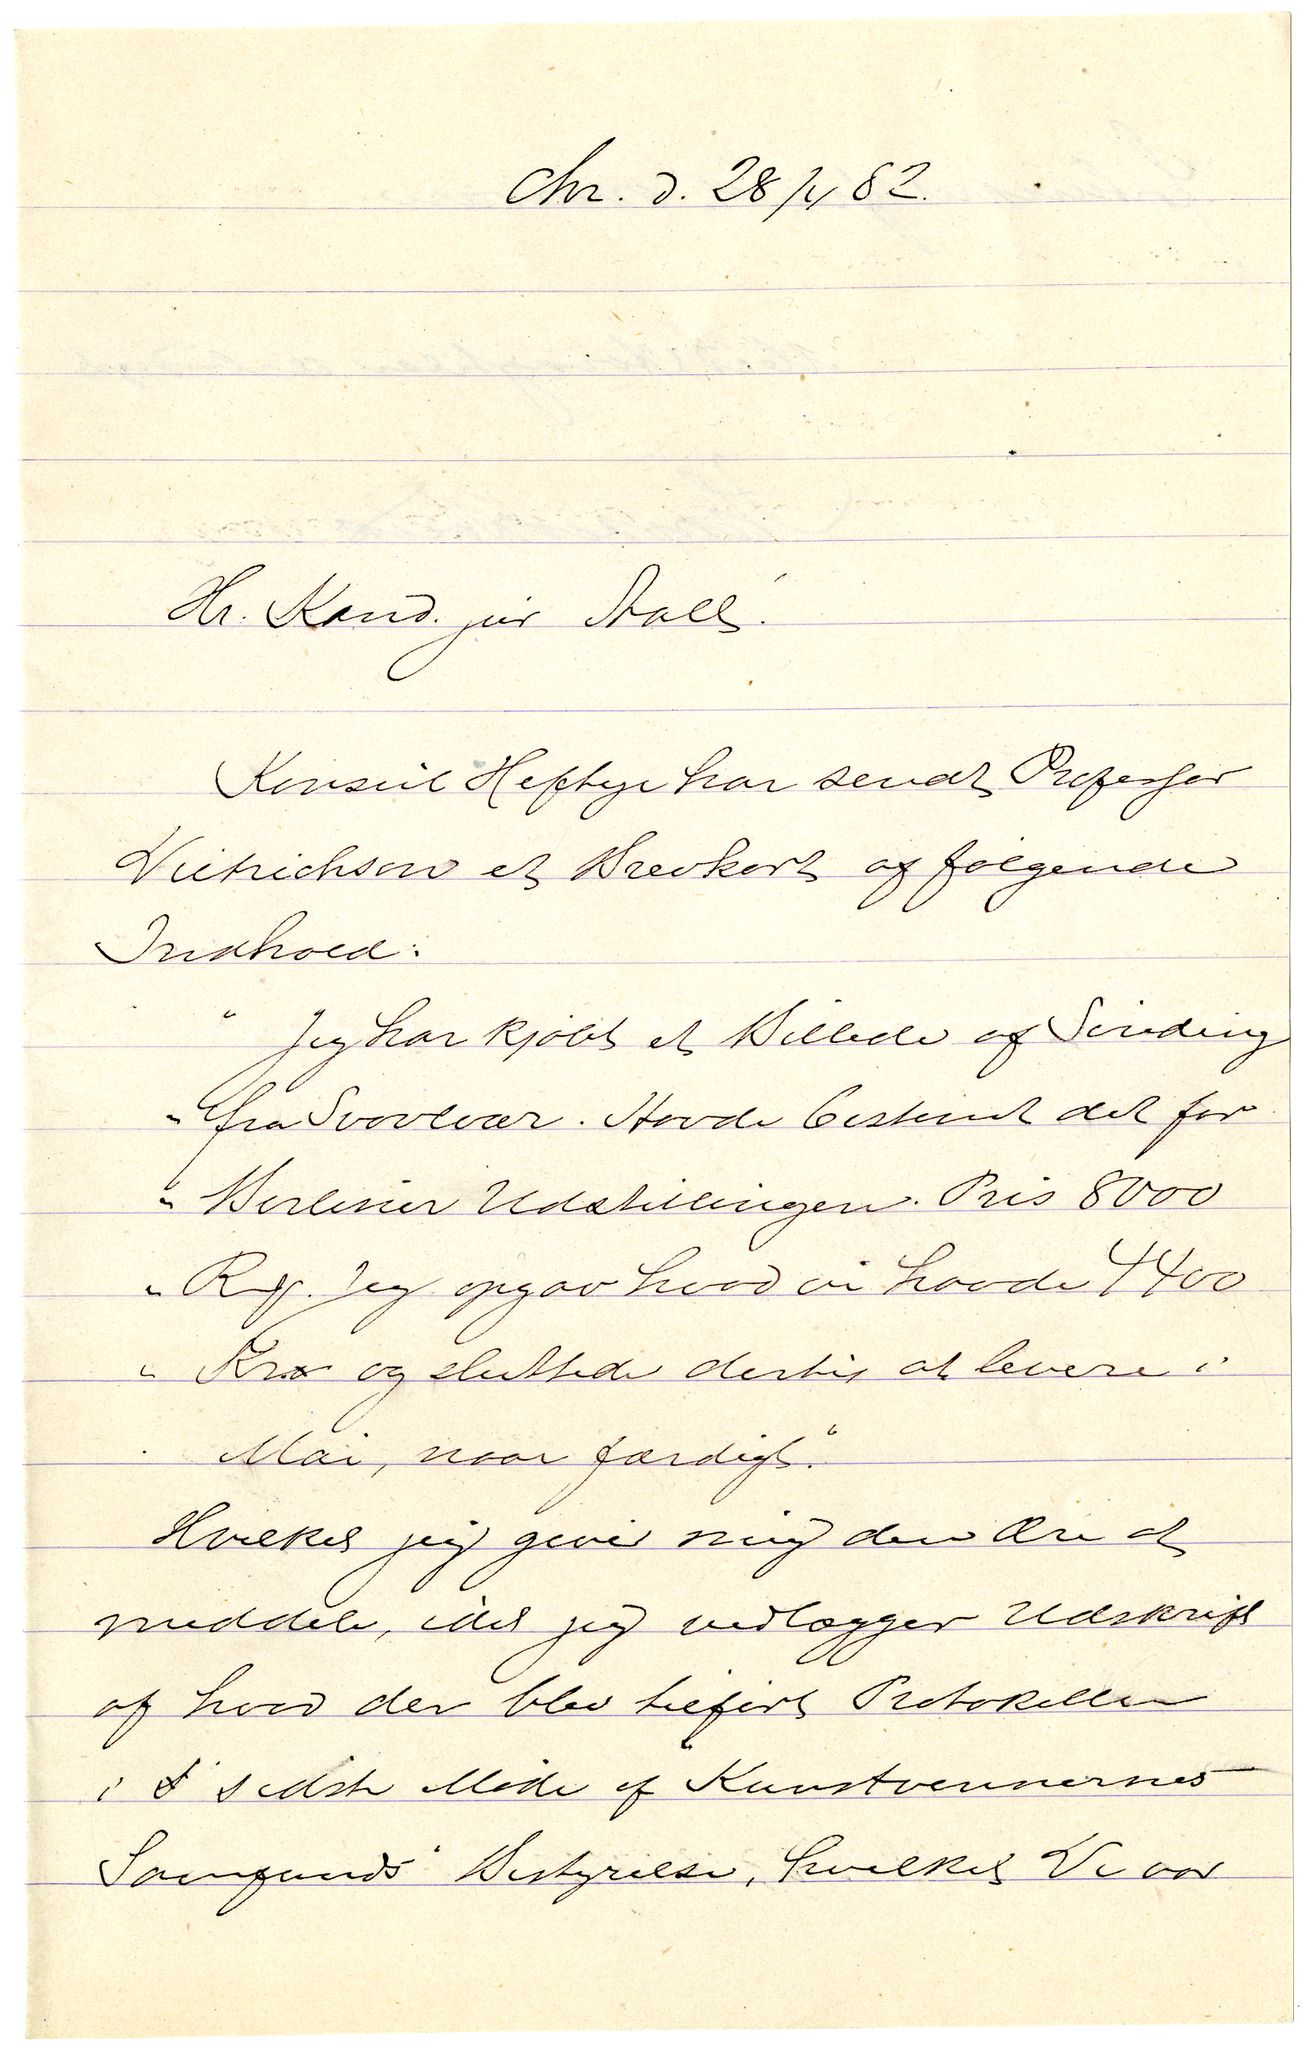 Chr. d. 28/4 82.
Hr. Kand. jur Aall.
Konsul Heftye har sendt Professor
Dietrichson et Brevkort af følgende
Indhold:
" Jeg har kjøbt et Billede af Sinding
" fra Svolvær. Havde bestemt det for
" Berliner Udstillingen. Pris 8000
" Rm. Jeg opgav hvad vi havde 4400
" Kr og sluttede dertil at levere i
Mai, naar færdigt."
Hvilket jeg giver mig den Ære at
meddele, idet jeg vedlægger Udskrift
af hvad der blev tilført Protokollen
i sidste Møde af "Kunstvennernes
Samfunds" Bestyrelse, hvilket De var